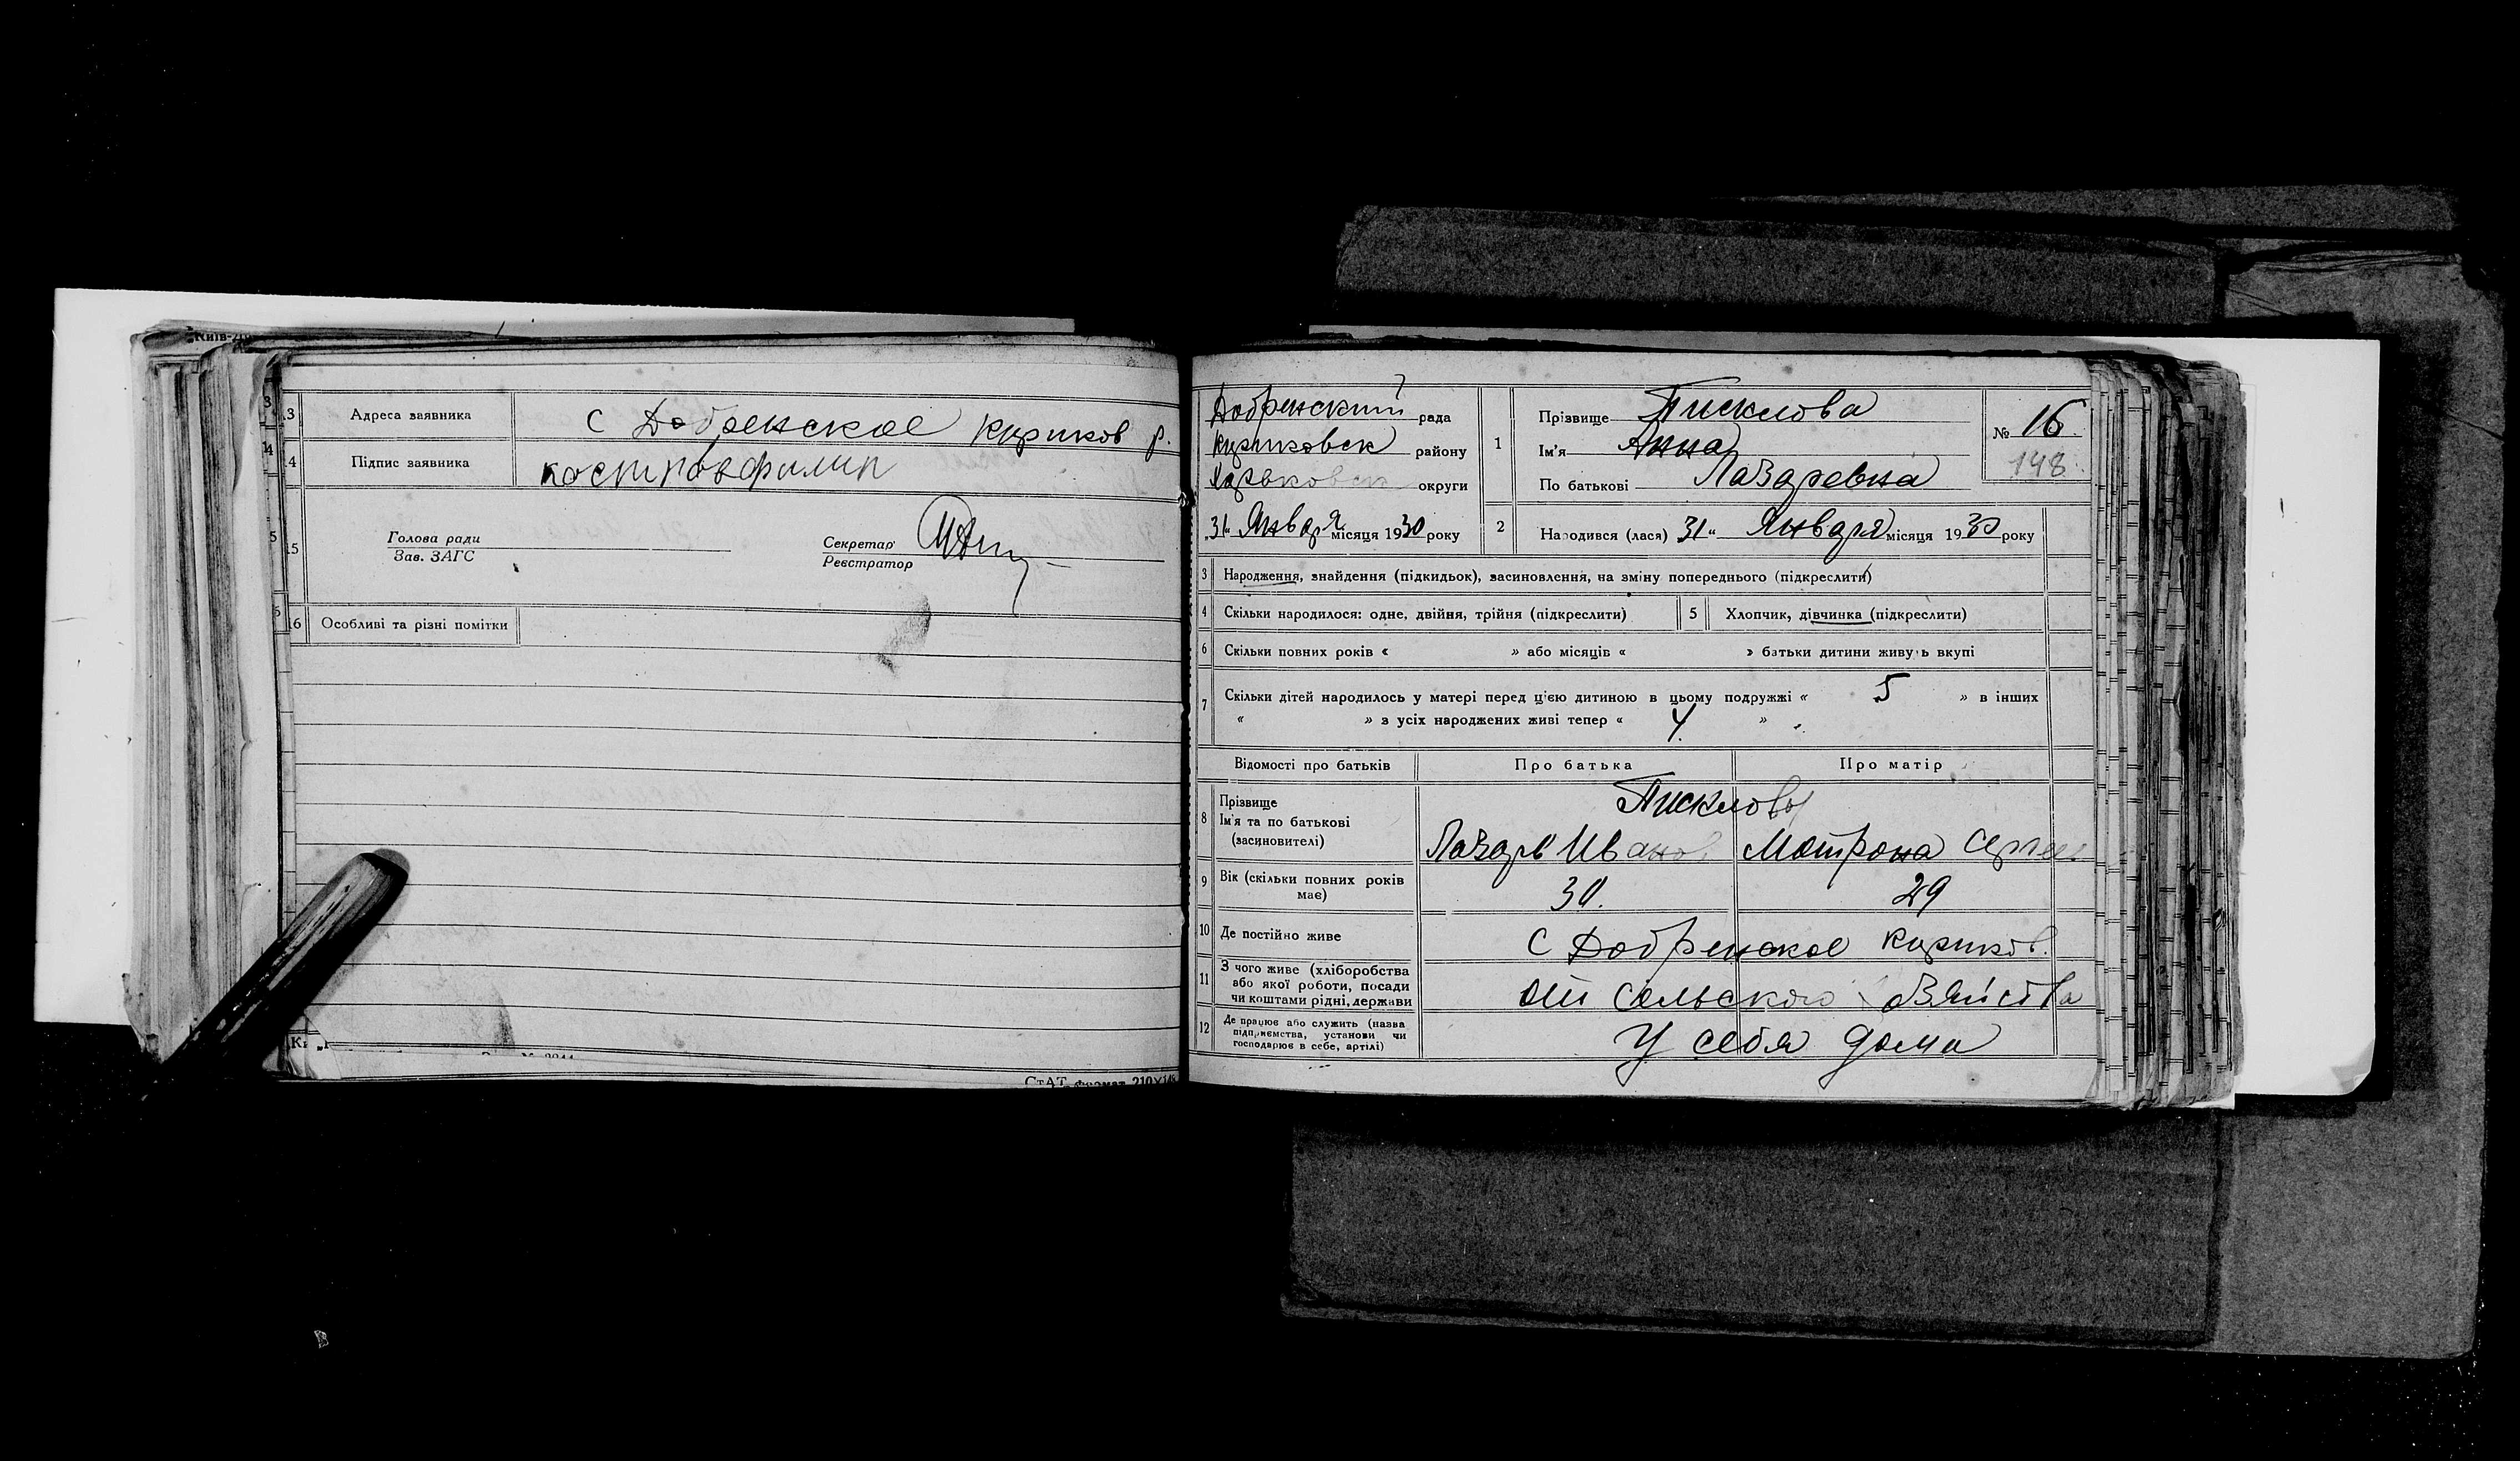 13 Адреса заявника С Добренское Куриков р.
14 Підпис заявника
15 Голова ради
Зав. ЗАГС
Секретар
Реєстратор
16 Особливі та різні помітки
СтАТ формат 210×148
Добренский рада
району
Харьковск округи
„31“ Января місяця 1930 року
1 Прізвище Писклова
Ім'я Анна
По батькові Лазаревна
№ 16
148
2 Народився (лася) 31“ Января місяця 1930 року
3 Народження, знайдення (підкидьок), васиновлення, на зміну попереднього (підкреслити)
4 Скільки народилося: одне, двійня, трійня (підкреслити)
5 Хлопчик, дівчинка (підкреслити)
6 Скільки повних років « » або місяців « » батьки дитини живуть вкупі
7 Скільки дітей народилось у матері перед цією дитиною в цьому подружжі « 5 » в інших
« » з усіх народжених живі тепер « 4 »
Відомості про батьків Про батька Про матір
8 Прізвище
Ім'я та по батькові
(засиновителі)
Пискловы
Лазарь Иванов Мотрона Сергеев
9 Вік (скільки повних років
має)
30. 29
10 Де постійно живе С Добренское Куриков.
11 З чого живе (хліборобства
або якої роботи, посади
чи коштами рідні, держави
от сельского хозяйства
12 Де працює або служить (назва
підприємства, установи чи
господарює в себе, артілі)
У себя дома